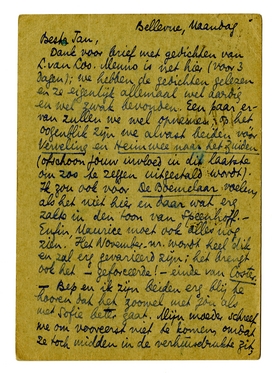 Bellevue, Maandag
Beste Jan,
Dank voor brief met gedichten van
L. van Loo. Menno is net hier (voor 3
dagen); we hebben de gedichten gelezen
en ze eigenlijk allemaal wel aardig
en wel zwak bevonden. Een paar er-
van zullen we wel opnemen; op het
oogenblik zijn we alvast beiden vóór
Verveling en Heimwee naar het Zuiden
(ofschoon jouw invloed in die laatste
om zoo te zeggen uitgestald wordt).
Ik zou ook voor De Boemelaar voelen,
als het niet hier en daar wat erg
zakte in den toon van Speenhoff.
Enfin Maurice moet ook alles nog
zien. Het November-nr. wordt heel dik
en zal erg gevarieerd zijn; het brengt
ook het - geforceerde! - einde van Coster.
- Bep en ik zijn beiden erg blij te
hooren dat het zoowel met zoon als
met Sofie beter gaat. Mijn moeder schreef
me om vooreerst niet te komen, omdat
ze toch midden in de verhuisdrukte zit,